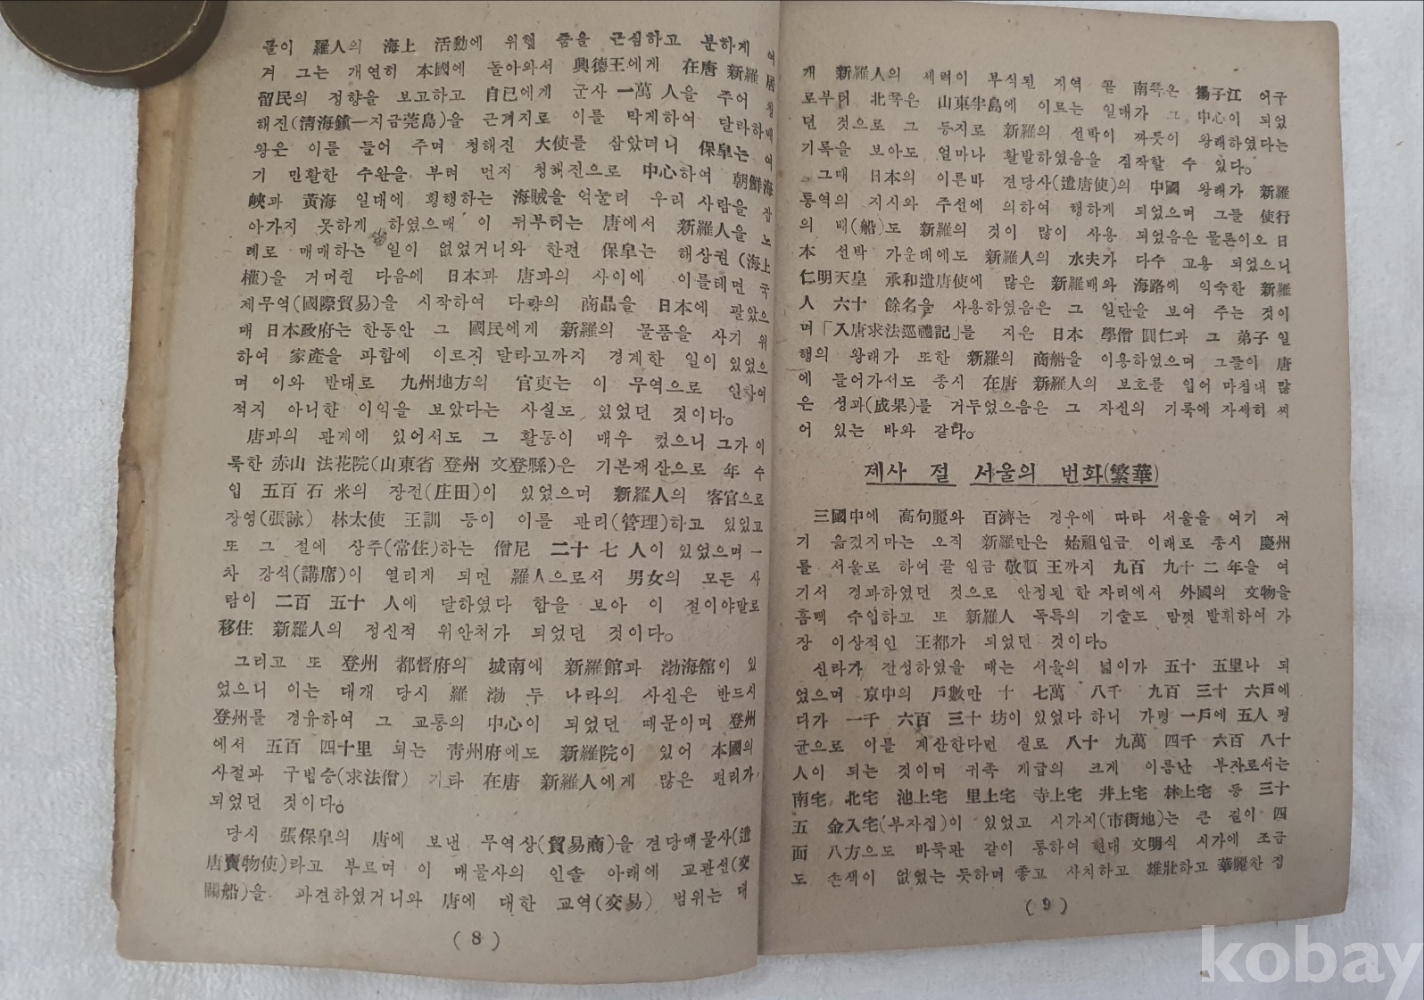 물이 羅人의 海上 活動에 위협 줌을 근심하고 분하게 여
겨 그는 개연히 本國에 돌아와서 興德王에게 在唐 新羅 居
留民의 정향을 보고하고 自己에게 군사 一萬 人을 주어 청
해진(淸海鎭—지금莞島)을 근겨지로 이를 막게하여 달라하매
왕은 이를 들어 주며 청해진 大使를 삼았더니 保皐는 여
기 민활한 수완을 부려 먼저 청해진으로 中心하여 朝鮮海
峽과 黃海 일대에 횡행하는 海賊을 억눌러 우리 사람을 잡
아가지 못하게 하였으매 이 뒤부터는 唐에서 新羅人을 노
례로 매매하는 일이 없었거니와 한편 保皐는 해상권 (海上
權)을 거머쥔 다음에 日本과 唐과의 사이에 이를테면 국
제무역(國際貿易)을 시작하여 다량의 商品을 日本에 팔았으
매 日本政府는 한동안 그 國民에게 新羅의 물품을 사기 위
하여 家產을 파함에 이르지 말라고까지 경계한 일이 있었으
며 이와 반대로 九州地方의 官吏는 이 무역으로 인하여
적지 아니한 이익을 보았다는 사실도 있었던 것이다。
唐과의 관게에 있어서도 그 활동이 매우 컸으니 그가 이
룩한 赤山 法花院(山東省 登州 文登縣)은 기본재산으로 年 수
입 五百 石 米의 장전(庄田)이 있었으며 新羅人의 客官으로
장영(張詠) 林太使 王訓 등이 이를 관리(管理)하고 있었고
또 그 절에 상주(常住)하는 僧尼 二十 七 人이 있었으며 一
차 강석(講席)이 열리게 되면 羅人으로서 男女의 모든 사
람이 二百 五十 人에 달하였다 함을 보아 이 절이야말로
移住 新羅人의 정신적 위안처가 되었던 것이다。
그리고 또 登州 都督府의 城南에 新羅館과 渤海館이 있
었으니 이는 대개 당시 羅 渤 두 나라의 사신은 반드시
登州를 경유하여 그 교통의 中心이 되었던 때문이며 登州
에서 五百 四十里 되는 靑州府에도 新羅院이 있어 本國의
사절과 구법승(求法僧) 기타 在唐 新羅人에게 많은 편리가
되었던 것이다。
당시 張保皐의 唐에 보낸 무역상(貿易商)을 견당매물사(遣
唐賣物使)라고 부르며 이 매물사의 인솔 아래에 교관선(交
關船)을 파견하였거니와 唐에 대한 교역(交易) 범위는 대
( 8 )
개 新羅人의 세력이 부식된 지역 끝 南쪽은 揚子江 어구
로부터 北쪽은 山東半島에 이르는 일대가 그 中心이 되었
던 것으로 그 등지로 新羅의 선박이 짜듯이 왕래하였다는
기록을 보아도 얼마나 활발하였음을 짐작할 수 있다。
그때 日本의 이른바 견당사(遣唐使)의 中國 왕래가 新羅
통역의 지시와 주선에 의하여 행하게 되었으며 그들 使行
의 배(船)도 新羅의 것이 많이 사용 되었음은 물론이오 日
本 선박 가운데에도 新羅人의 水夫가 다수 고용 되었으니
仁明天皇 承和遣唐使에 많은 新羅배와 海路에 익숙한 新羅
人 六十 餘名을 사용하였음은 그 일단을 보여 주는 것이
며「入唐求法巡禮記」를 지은 日本 學僧 圓仁과 그 弟子 일
행의 왕래가 또한 新羅의 商船을 이용하였으며 그들이 唐
에 들어가서도 종시 在唐 新羅人의 보호를 입어 마침내 많
은 성과(成果)를 거두었으음은 그 자신의 기록에 자세히 씌
어 있는 바와 같다。
제사 절 서울의 번화(繁華)
三國中에 高句麗와 百濟는 경우에 따라 서울을 여기 저
기 옮겼지마는 오직 新羅만은 始祖임금 이래로 종시 慶州
를 서울로 하여 끝 임금 敬順 王까지 九百 九十 二 年을 여
기서 경과하였던 것으로 안정된 한 자리에서 外國의 文物을
흠뻑 수입하고 또 新羅人 독특의 기술도 맘껏 발휘하여 가
장 이상적인 王都가 되었던 것이다。
신라가 간성하였을 때는 서울의 넓이가 五十 五里나 되
었으며 京中의 戶數만 十 七萬 八千 九百 三十 六戶에
다가 一千 六百 三十 坊이 있었다 하니 가령 一戶에 五人 평
균으로 이를 계산한다면 실로 八十 九萬 四千 六百 八十
人이 되는 것이며 귀족 게급의 크게 이름난 부자로서는
南宅 北宅 池上宅 里上宅 寺上宅 井上宅 林上宅 등 三十
五 金入宅(부자집)이 있었고 시가지(市街地)는 큰 길이 四
面 八方으로 바둑판 같이 통하여 현대 文明식 시가에 조금
도 손색이 없었는 듯하며 좋고 사치하고 雄壯하고 華麗한 점
( 9 )
kobay